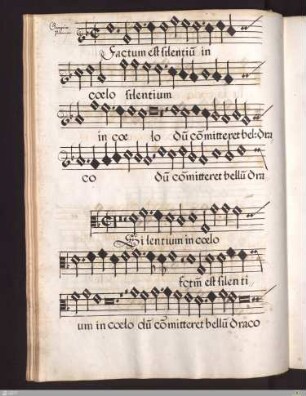 Factum est silentiũ in
cœlo silentium
in cœ lo dũ cõmitteret bel: dra
co dũ cõmitteret bellũ dra
Silentium in cœlo
fctm̃ est silenti
um in cœlo dũ cõmitteret bellũ draco